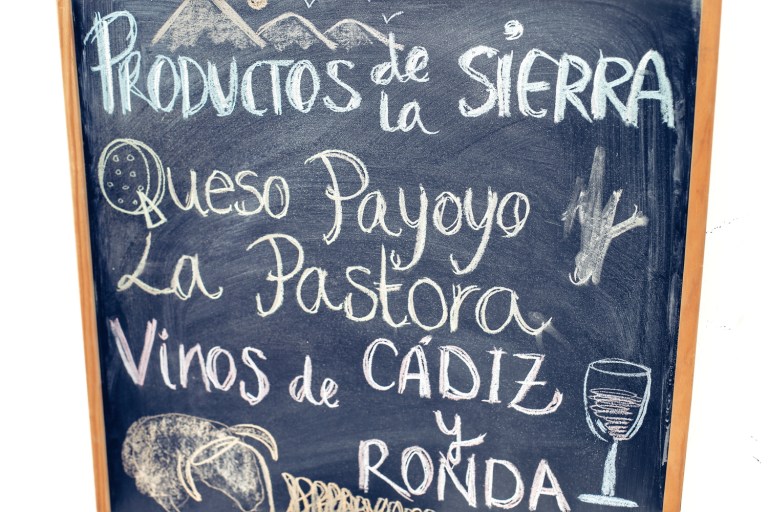 PRODUCTOS de la SiERRA
Queso Payoyo
La Pastora
Vinos de CÁDIZ
y
RONDA